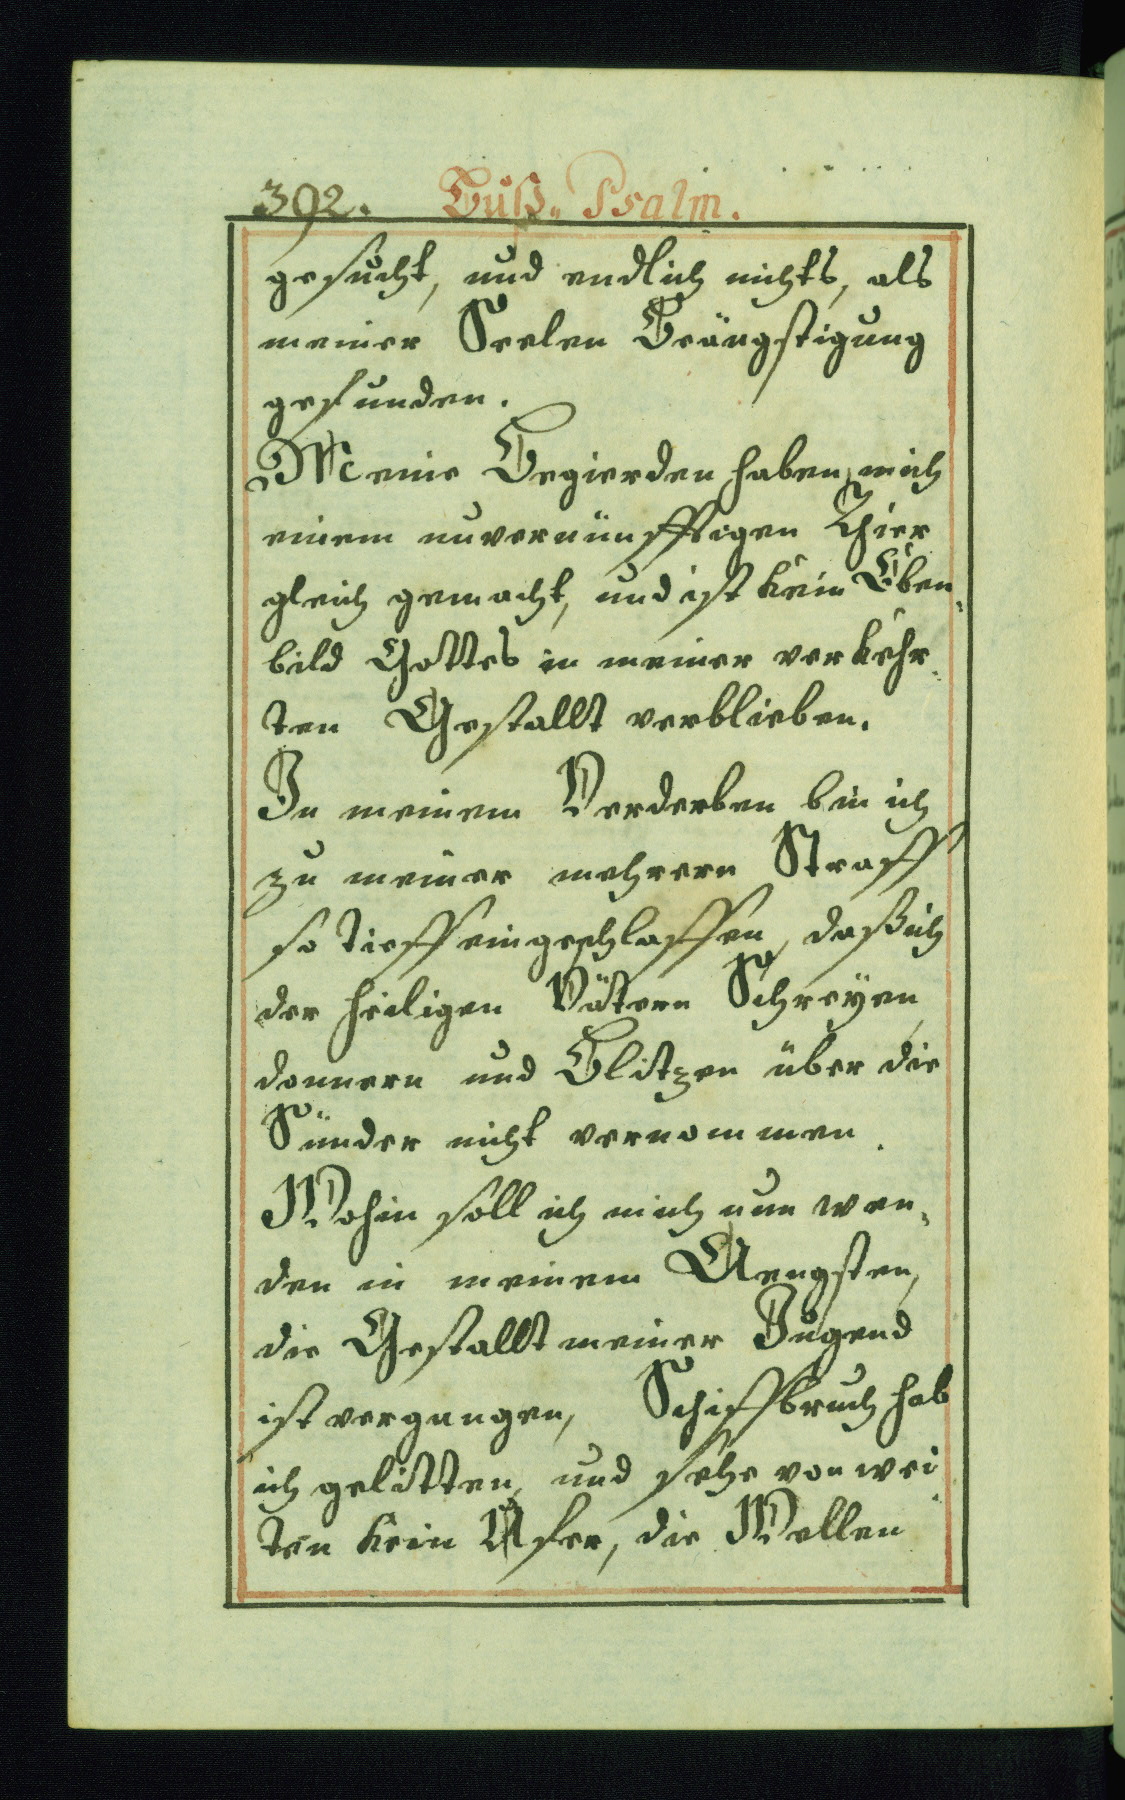 392. Buß„ Psalm.
gesucht, und endlich nichts, als
meiner Seelen Beängstigung
gefunden.
Meine Begierden haben mich
einem unvernünfftigen Thier
gleich gemacht, und ist kein Eben„
bild Gottes in meiner verkehr„
ten Gestallt verblieben.
In meinem Verderben bin ich
zu meiner mehrern Straff
so tieff eingeschlaffen, daß ich
der heiligen Vätern Schreÿen,
donnern und Blitzen über die
Sünder nicht vernommen.
Wohin soll ich mich nun wen„
den in meinem Aengsten,
die Gestallt meiner Jugend
ist vergangen, Schiffbruch hab
ich gelitten, und sehe von wei„
ten kein Ufer, die Wellen